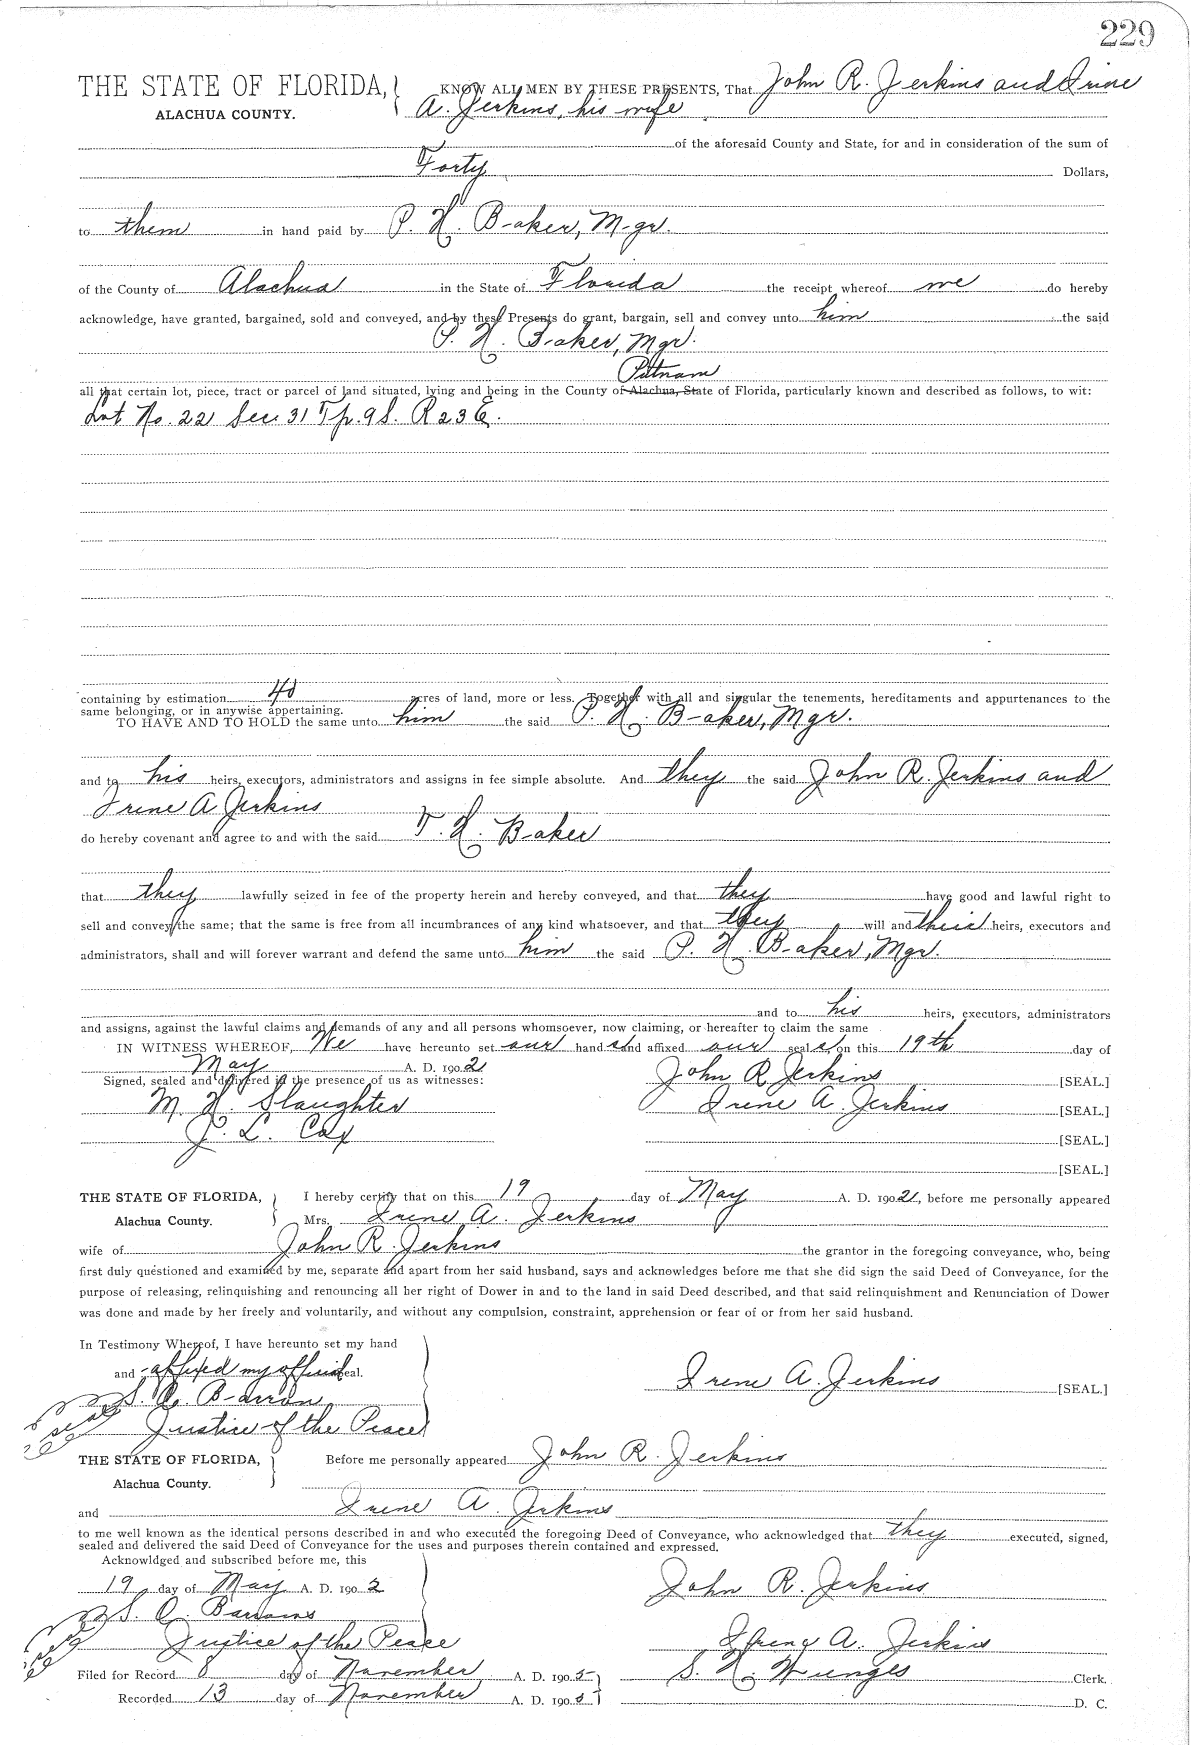 229
THE STATE OF FLORIDA, KNOW ALL MEN BY THESE PRESENTS, That John R. Jerkins and Irine
ALACHUA COUNTY. A. Jerkins, his wife
of the aforesaid County and State, for and in consideration of the sum of
Forty Dollars,
to them in hand paid by P. H. Baker, Mgr.
of the County of Alachua in the State of Florida the receipt whereof we do hereby
acknowledge, have granted, bargained, sold and conveyed, and by these Presents do grant, bargain, sell and convey unto him the said
P. H. Baker, Mgr.
Putnam
all that certain lot, piece, tract or parcel of land situated, lying and being in the County of Alachua, State of Florida, particularly known and described as follows, to wit:
Lot No. 22 Sec. 31 Tp. 9 S. R 23 E.
containing by estimation 40 acres of land, more or less. Together with all and singular the tenements, hereditaments and appurtenances to the
same belonging, or in anywise appertaining.
TO HAVE AND TO HOLD the same unto him the said P. H. Baker, Mgr.
and to his heirs, executors, administrators and assigns in fee simple absolute. And they the said John R. Jerkins and
Irene A Jerkins
do hereby covenant and agree to and with the said T. H. Baker
that they lawfully seized in fee of the property herein and hereby conveyed, and that they have good and lawful right to
sell and convey the same; that the same is free from all incumbrances of any kind whatsoever, and that they will and their heirs, executors and
administrators, shall and will forever warrant and defend the same unto him the said P. H. Baker, Mgr.
and to his heirs, executors, administrators
and assigns, against the lawful claims and demands of any and all persons whomsoever, now claiming, or hereafter to claim the same
IN WITNESS WHEREOF, We have hereunto set our hand s and affixed our seal s on this 19th day of
May A. D. 190 2
Signed, sealed and delivered in the presence of us as witnesses: John R Jerkins [SEAL.]
M. H. Slaughter Irene A. Jerkins [SEAL.]
J. L. Cox [SEAL.]
[SEAL.]
THE STATE OF FLORIDA, I hereby certify that on this 19 day of May A. D. 190 2, before me personally appeared
Alachua County. Mrs. Irene A. Jerkins
wife of John R. Jerkins the grantor in the foregoing conveyance, who, being
first duly questioned and examined by me, separate and apart from her said husband, says and acknowledges before me that she did sign the said Deed of Conveyance, for the
purpose of releasing, relinquishing and renouncing all her right of Dower in and to the land in said Deed described, and that said relinquishment and Renunciation of Dower
was done and made by her freely and voluntarily, and without any compulsion, constraint, apprehension or fear of or from her said husband.
In Testimony Whereof, I have hereunto set my hand
and affixed my official seal. Irene A. Jerkins [SEAL.]
seal S. Barron
Justice of the Peace
THE STATE OF FLORIDA, Before me personally appeared John R. Jerkins
Alachua County.
and Irene A. Jerkins
to me well known as the identical persons described in and who executed the foregoing Deed of Conveyance, who acknowledged that they executed, signed,
sealed and delivered the said Deed of Conveyance for the uses and purposes therein contained and expressed.
Acknowldged and subscribed before me, this
19 day of May A. D. 190 2 John R. Jerkins
S. Barrons
seal Justice of the Peace Irene A. Jerkins
Filed for Record 8 day of November A. D. 190 5 S. H. Clerk.
Recorded 13 day of November A. D. 190 5 D. C.